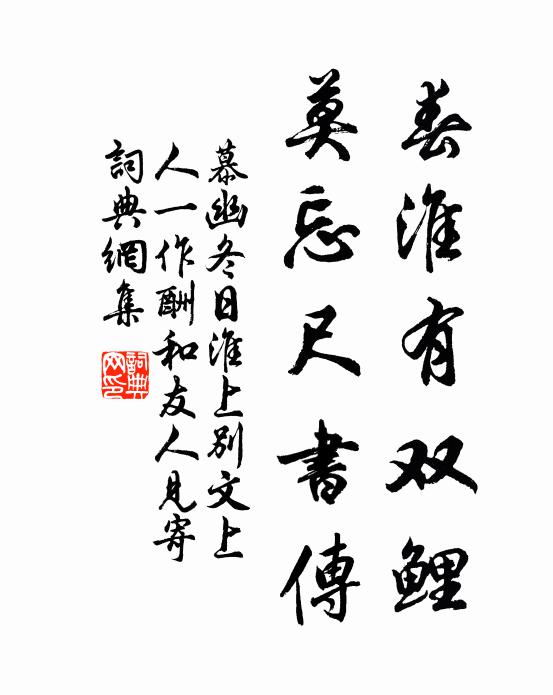 春淮有双鲤
莫忘尺書傳
慕幽冬日淮上別文上
人一作酬和友人見寄
詞典網集
詞典
网印